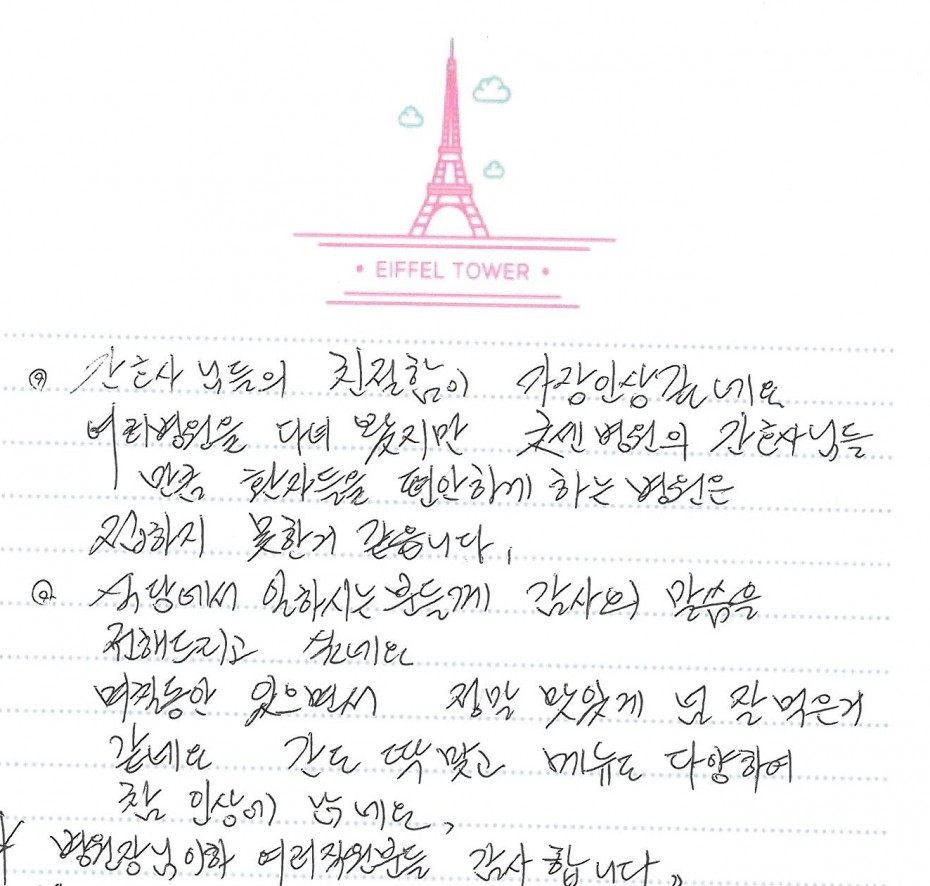 • EIFFEL TOWER •
① 간호사님들의 친절함이 가장인상깊네요
여러병원을 다녀 봤지만 굿센병원의 간호사님들
만큼 환자들을 편안하게 하는 병원은
접하지 못한거 같읍니다.
② 식당에서 일하시는분들께 감사의 말씀을
전해드리고 싶네요
며칠동안 있으면서 정말 맛있게 넘 잘먹은거
같네요 간도 딱맞고 메뉴도 다양하여
참 인상에 남네요,
병원장님이하 여러직원분들 감사합니다.